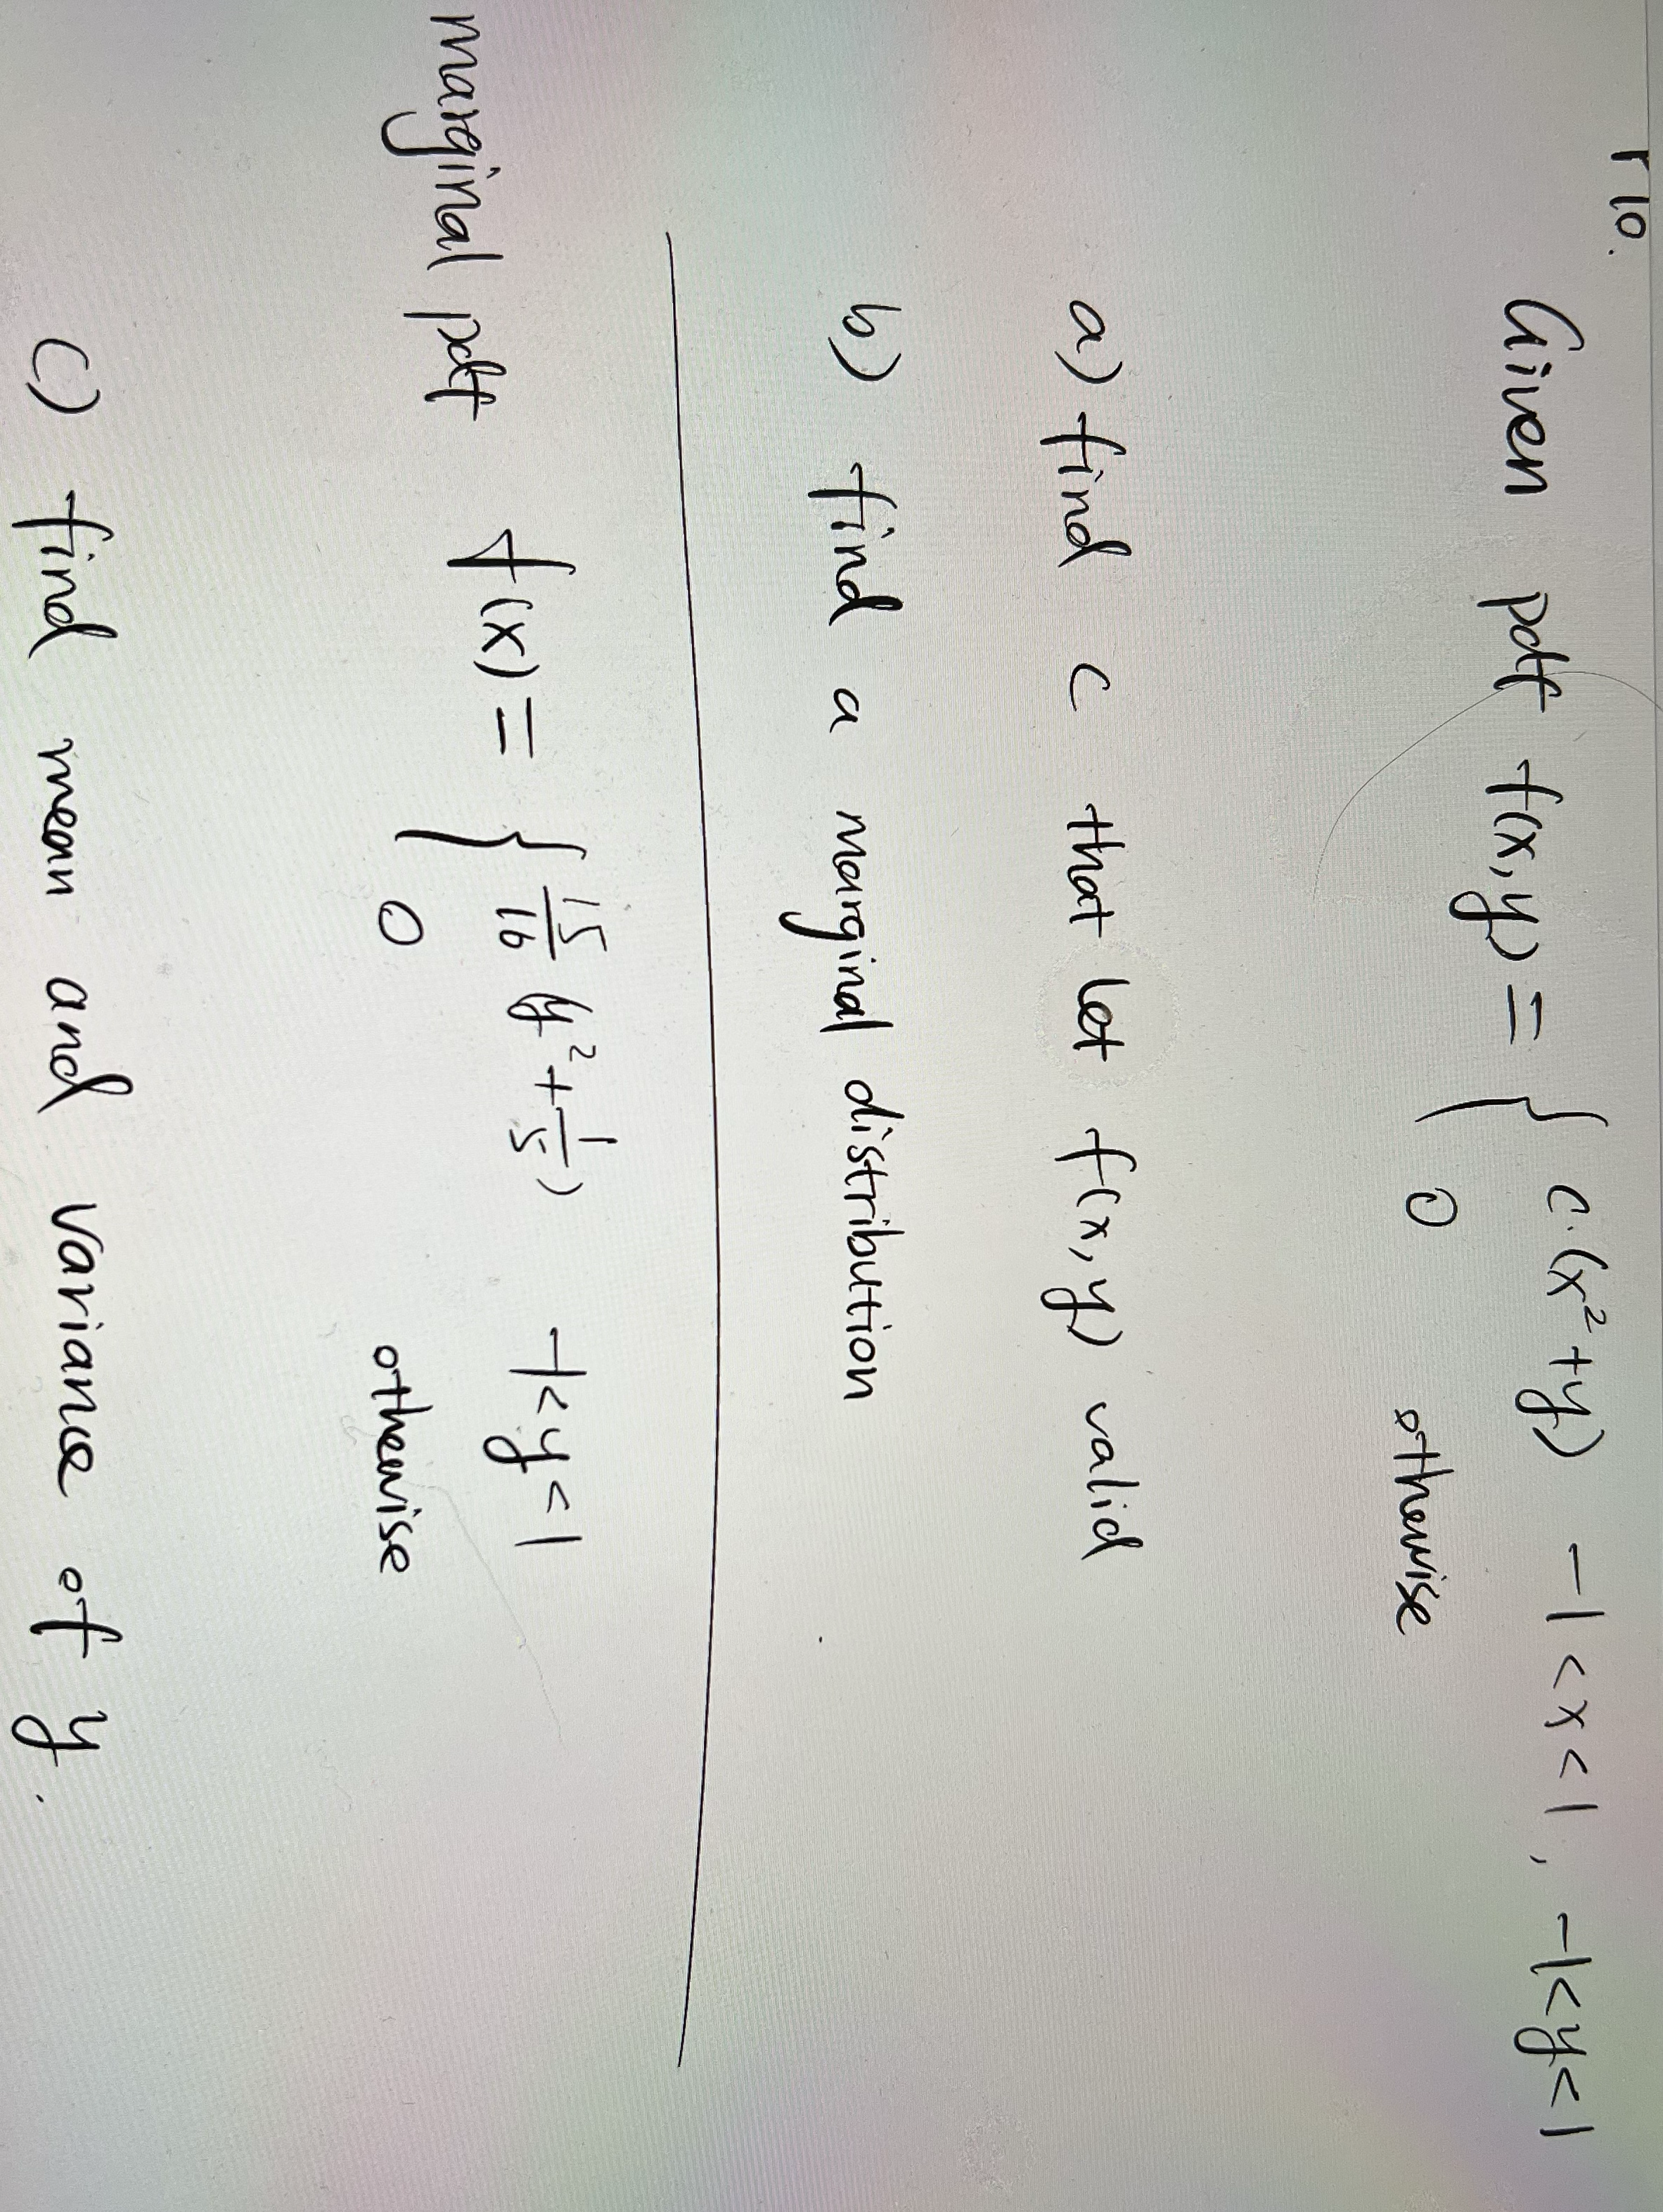 r 10.
Given pdf f(x,y) = { c·(x²+y) -1<x<1, -1<y<1
0 otherwise
a) find c that let f(x,y) valid
b) find a marginal distribution
marginal pdf f(x) = { 15/16 (y² + 1/5) -1<y<1
0 otherwise
c) find mean and variance of y.